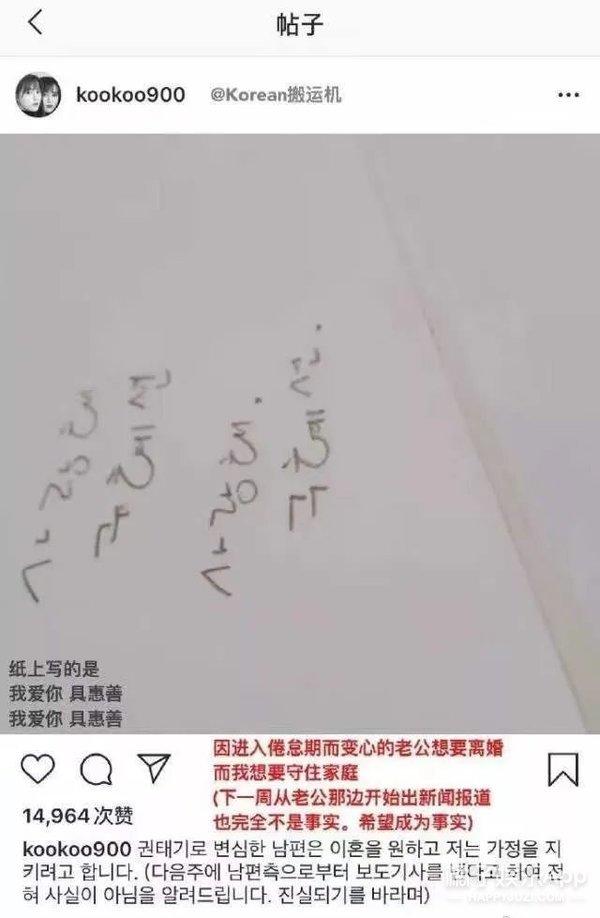 帖子
kookoo900 @Korean搬运机
사랑해
구혜선
사랑해.
구혜선.
纸上写的是
我爱你 具惠善
我爱你 具惠善
因进入倦怠期而变心的老公想要离婚
而我想要守住家庭
(下一周从老公那边开始出新闻报道
也完全不是事实。希望成为事实)
14,964 次赞
kookoo900 권태기로 변심한 남편은 이혼을 원하고 저는 가정을 지
키려고 합니다. (다음주에 남편측으로부터 보도기사를 낸다고 하여 전
혀 사실이 아님을 알려드립니다. 진실되기를 바라며)
橘子娱乐App
HAPPYJUZI.COM